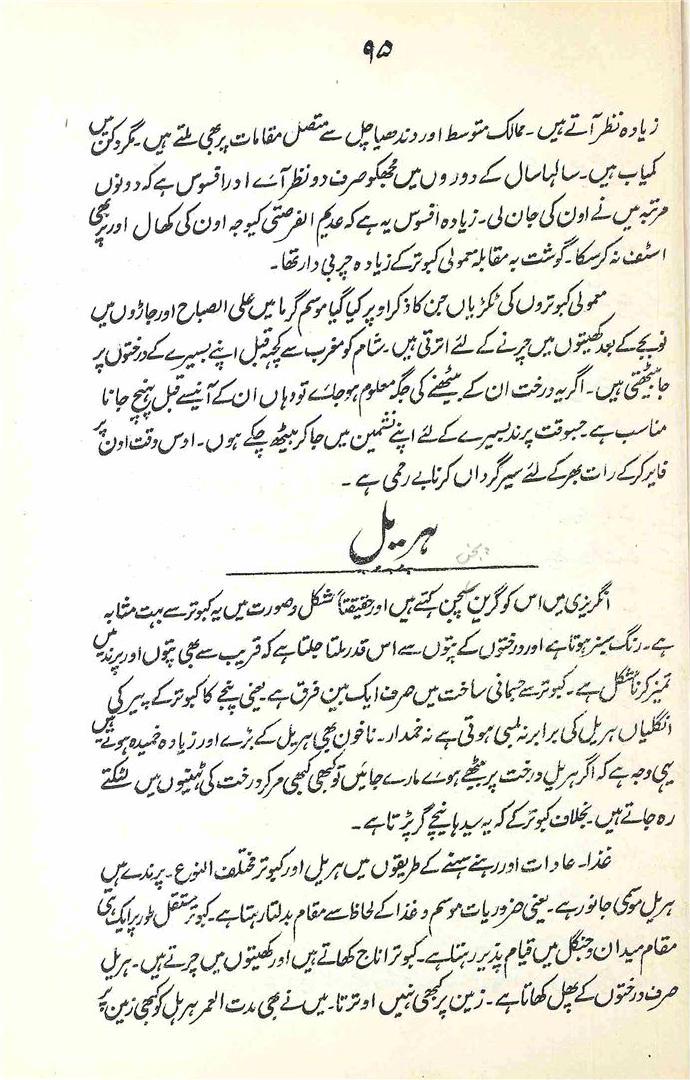 ۹۵
زیادہ نظر آتے ہیں۔ ممالک متوسط اور وندھیاچل سے متصل مقامات پر بھی ملتے ہیں۔ مگر دکن میں
کمیاب ہیں۔ سالہا سال کے دوروں میں مجھکو صرف دو نظر آے اور افسوس ہے کہ دونوں
مرتبہ میں نے اون کی جان لی۔ زیادہ افسوس یہ ہے کہ عدیم الفرصتی کیوجہ اون کی کھال اور پر بھی
اسٹف نہ کرسکا۔ گوشت بہ مقابلہ معمولی کبوتر کے زیادہ چربی دار تھا۔
معمولی کبوتروں کی ٹکڑیاں جن کا ذکر اوپر کیا گیا موسم گرما میں علی الصباح اور جاڑوں میں
نو بجے کے بعد کھیتوں میں چرنے کے لئے اترتی ہیں۔ شام کو مغرب سے کچھ قبل اپنے بسیرے کے درختوں پر
جا بیٹھتی ہیں۔ اگر یہ درخت ان کے بیٹھنے کی جگہ معلوم ہوجاے تو وہاں ان کے آنیسے قبل پہنچ جانا
مناسب ہے۔ جسوقت پرند بسیرے کے لئے اپنے نشمین میں جاکر بیٹھ چکے ہوں۔ اوس وقت اون پر
فایر کرکے رات بھر کے لئے سیر گرداں کرنا بے رحمی ہے۔
ہریل
انگریزی میں اس کو گرین پیجن کہتے ہیں اور حقیقتاً شکل و صورت میں یہ کبوتر سے بہت مشابہ
ہے۔ رنگ سبز ہوتا ہے اور درختوں کے پتوں سے اس قدر ملتا جلتا ہے کہ قریب سے بھی پتوں اور پرند میں
تمیز کرنا مشکل ہے۔ کبوتر سے جسمانی ساخت میں صرف ایک بین فرق ہے یعنی پنجے کا کبوتر کے پیر کی
انگلیاں ہریل کی برابر نہ لمبی ہوتی ہے نہ خمدار۔ ناخون بھی ہریل کے بڑے اور زیادہ خمیدہ ہوتے ہیں
یہی وجہ ہے کہ اگر ہریل درخت پر بیٹھے ہوے مارے جائیں تو کبھی کبھی مرکر درخت کی ٹہنیوں میں لٹکتے
رہ جاتے ہیں۔ بخلاف کبوتر کے کہ یہ سیدہا نیچے گر پڑتا ہے۔
غذا۔ عادات اور رہنے سہنے کے طریقوں میں ہریل اور کبوتر مختلف النوع۔ پرندے ہیں
ہریل موسمی جانور ہے۔ یعنی ضروریات موسم و غذا کے لحاظ سے مقام بدلتا رہتا ہے۔ کبوتر مستقل طور پر ایک ہی
مقام میدان و جنگل میں قیام پذیر رہتا ہے۔ کبوتر اناج کھاتے ہیں اور کھیتوں میں چرتے ہیں۔ ہریل
صرف درختوں کے پھل کھاتا ہے۔ زمین پر کبھی نہیں اوترتا۔ میں نے بھی مدت العمر ہریل کو کبھی زمین پر